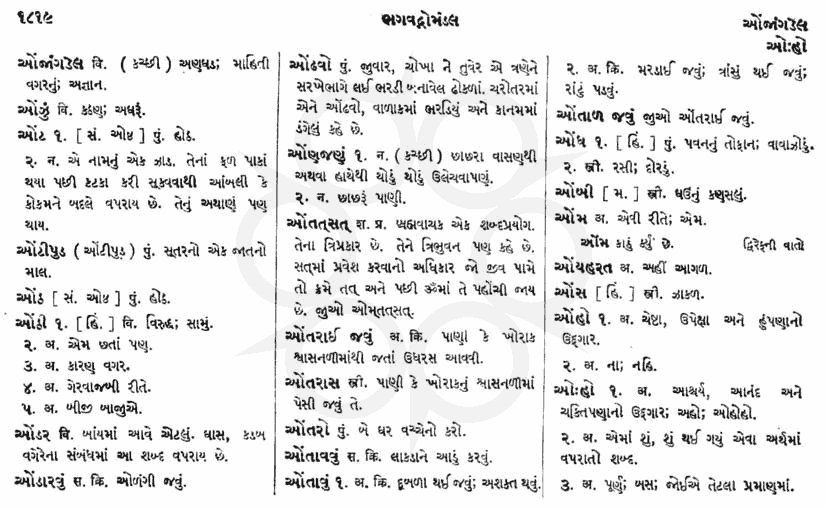 ૧૮૧૯
ભગવદ્ગોમંડલ
ઓંજાંગડેલ
ઓ:હો
ઓંજાંગડેલ વિ. ( કચ્છી ) અણઘડ; માહિતી
વગરનું; અજ્ઞાન.
ઓંઝું વિ. કઠણ; અઘરું.
ઓંટ ૧. [ સં. ઓષ્ઠ ] પું. હોઠ.
૨. ન. એ નામનું એક ઝાડ. તેનાં ફળ પાકાં
થયા પછી કટકા કરી સૂકવવાથી આંબલી કે
કોકમને બદલે વપરાય છે. તેનું અથાણું પણ
થાય.
ઓંટીપુડ ( ઓંટીપુડ ) પું. સૂતરનો એક જાતનો
માલ.
ઓંઠ [ સં. ઓષ્ઠ ] પું. હોઠ.
ઓંઠી ૧. [ હિં. ] વિ. વિરુદ્ધ; સામું.
૨. અ. એમ છતાં પણ.
૩. અ. કારણ વગર.
૪. અ. ગેરવાજબી રીતે.
૫. અ. બીજી બાજીએ.
ઓંડર વિ. બાંયમાં આવે એટલું. ઘાસ, કડબ
વગેરેના સંબંધમાં આ શબ્દ વપરાય છે.
ઓંડારવું સ. ક્રિ. ઓળંગી જવું.
ઓંઢવો પું. જુવાર, ચોખા ને તુવેર એ ત્રણેને
સરખેભાગે લઈ ભરડી બનાવેલ ઢોકળાં. ચરોતરમાં
એને ઓંઢવો, વાળાકમાં ભરડિયું અને કાનમમાં
ડંગેલું કહે છે.
ઓંણુજણું ૧. ન. ( કચ્છી ) છાછરા વાસણથી
અથવા હાથેથી થોડું થોડું ઉલેચવાપણું.
૨. ન. છાછરું પાણી.
ઓંતત્સત્ શ. પ્ર. બ્રહ્મવાચક એક શબ્દપ્રયોગ.
તેના ત્રિપ્રકાર છે. તેને ત્રિભુવન પણ કહે છે.
સત્‌માં પ્રવેશ કરવાનો અધિકાર જો જીવ પામે
તો ક્રમે તત્ અને પછી ૐમાં તે પહોંચી જાય
છે. જુઓ ઓમ્‌તત્સત્.
ઓંતરાઈ જવું અ. ક્રિ. પાણી કે ખોરાક
શ્વાસનળીમાંથી જતાં ઉધરસ આવવી.
ઓંતરાસ સ્ત્રી. પાણી કે ખોરાકનું શ્વાસનળીમાં
પેસી જવું તે.
ઓંતરો પું. બે ઘર વચ્ચેનો કરો.
ઓંતાવવું સ. ક્રિ. લાકડાને આડું કરવું.
ઓંતાવું ૧. અ. ક્રિ. દૂબળા થઈ જવું; અશક્ત થવું.
૨. અ. ક્રિ. મરડાઈ જવું; ત્રાંસું થઈ જવું;
રાંટું પડવું.
ઓંતાળ જવું જુઓ ઓંતરાઈ જવું.
ઓંધ ૧. [ હિં. ] પું. પવનનું તોફાન; વાવાઝોડું.
૨. સ્ત્રી. રસી; દોરડું.
ઓંબી [ મ. ] સ્ત્રી. ઘઉંનું કણસલું.
ઓંમ અ. એવી રીતે; એમ.
ઓંમ કાહું ર્ક્યું છે. દ્વિરેફની વાતો
ઓંયહરત અ. અહીં આગળ.
ઓંસ [ હિં. ] સ્ત્રી. ઝાકળ.
ઓંહો ૧. અ. ચેષ્ટા, ઉપેક્ષા અને હુંપણાનો
ઉદ્ગાર.
૨. અ. ના; નહિ.
ઓ:હો ૧. અ. આશ્ચર્ય, આનંદ અને
ચકિતપણાનો ઉદ્ગાર; અહો; ઓહોહો.
૨. અ. એમાં શું, શું થઈ ગયું એવા અર્થમાં
વપરાતો શબ્દ.
૩. અ. પૂર્ણ; બસ; જોઈએ તેટલા પ્રમાણમાં.